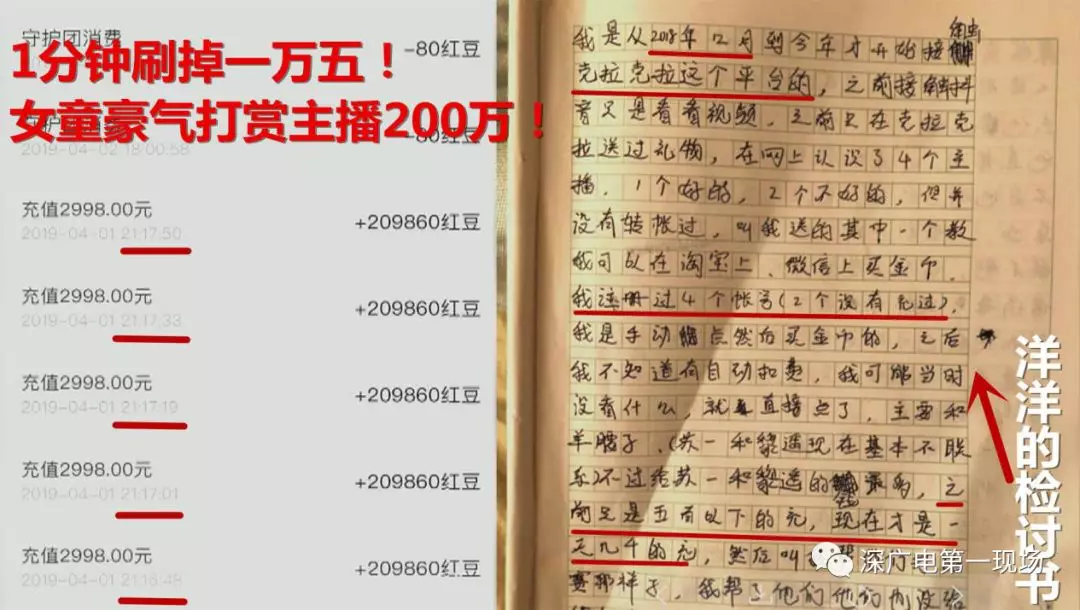 守护团消费
-80红豆
1分钟刷掉一万五！
女童豪气打赏主播200万！
-80红豆
2019-04-02 18:00:58
充值2998.00元
+209860红豆
2019-04-01 21:17:50
充值2998.00元
+209860红豆
2019-04-01 21:17:33
充值2998.00元
+209860红豆
2019-04-01 21:17:19
充值2998.00元
+209860红豆
2019-04-01 21:17:01
充值2998.00元
+209860红豆
2019-04-01 21:16:48
我是从2018年12月到今年才开始接触
克拉克拉这个平台的，之前接触抖
音只是看看视频，之前只在克拉克
拉送过礼物，在网上认识了4个主
播，1个好的，2个不好的，但并
没有转帐过，叫我送的其中一个教
我可以在淘宝上、微信上买金币，
我注册过4个帐号(2个没有充过)，
我是手动点然后买金币的，之后
我不知道有自动扣费，我可能当时
没看什么，就直接点了，主要和
羊腰子、(苏一和黎遥现在基本不联
系)不过给苏一和黎遥的最多，之
前只是五百以下的充，现在才是一
天几千的充，然后叫我
赛那样子，我帮了他们他们也没
洋洋的检讨书
深广电第一现场